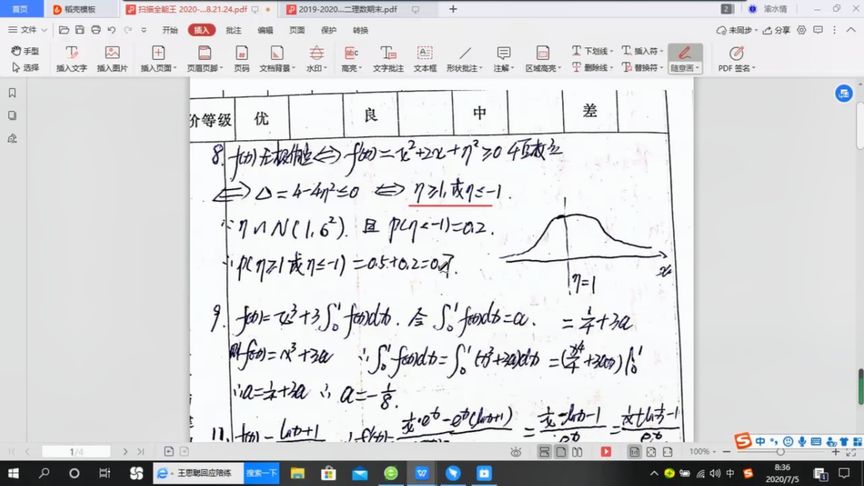 首页 稻壳模板 扫描全能王 2020-...8.21.24.pdf 2019-2020...二理数期末.pdf + 2 渝水情
文件 开始 插入 批注 编辑 页面 保护 转换 未同步 分享
手型 选择 插入文字 插入图片 插入页面 页眉页脚 页码 文档背景 水印 高亮 文字批注 文本框 形状批注 注解 区域高亮 下划线 删除线 插入符 替换符 随意画 PDF 签名
价等级 优 良 中 差
8. f(x)无极值 ⟺ f'(x)=x²+2x+η²≥0 恒成立
⟺ Δ=4-4η²≤0 ⟺ η≥1,或η≤-1.
∵ η∽N(1,6²). 且 P(η<-1)=0.2.
∴ P(η≥1或η≤-1)=0.5+0.2=0.7.
x
η=1
9. f(x)=x³+3∫₀¹f(x)dx. 令∫₀¹f(x)dx=a. =1/4+3a
则f(x)=x³+3a ∴∫₀¹f(x)dx=∫₀¹(x³+3a)dx=(x⁴/4+3ax)|₀¹
∴a=1/4+3a ∴ a=-1/8.
11.
1/4 100%
王思聪回应陪练 搜索一下
中
8:36
2020/7/5